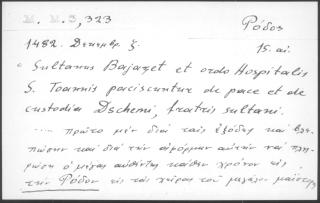 M. M. 3, 323
Ρόδος
1482. Δεκεμβρ. ζ.
15. αι.
Sultanus Bajazet et ordo Hospitalis
S. Toannis paciscuntur de pace et de
custodia Dschemi, fratris sultani.
.... πρώτο μέν διά ταίς ἐξόδαις καί
πώσην καί διά την αὐτών νά πλη-
ρώση ὁ μέγας αὐθέντης καθέν χρόνον εἰς
τήν Ρόδον εἰς τάς χείρας τοῦ μεγάλου μαΐστορ